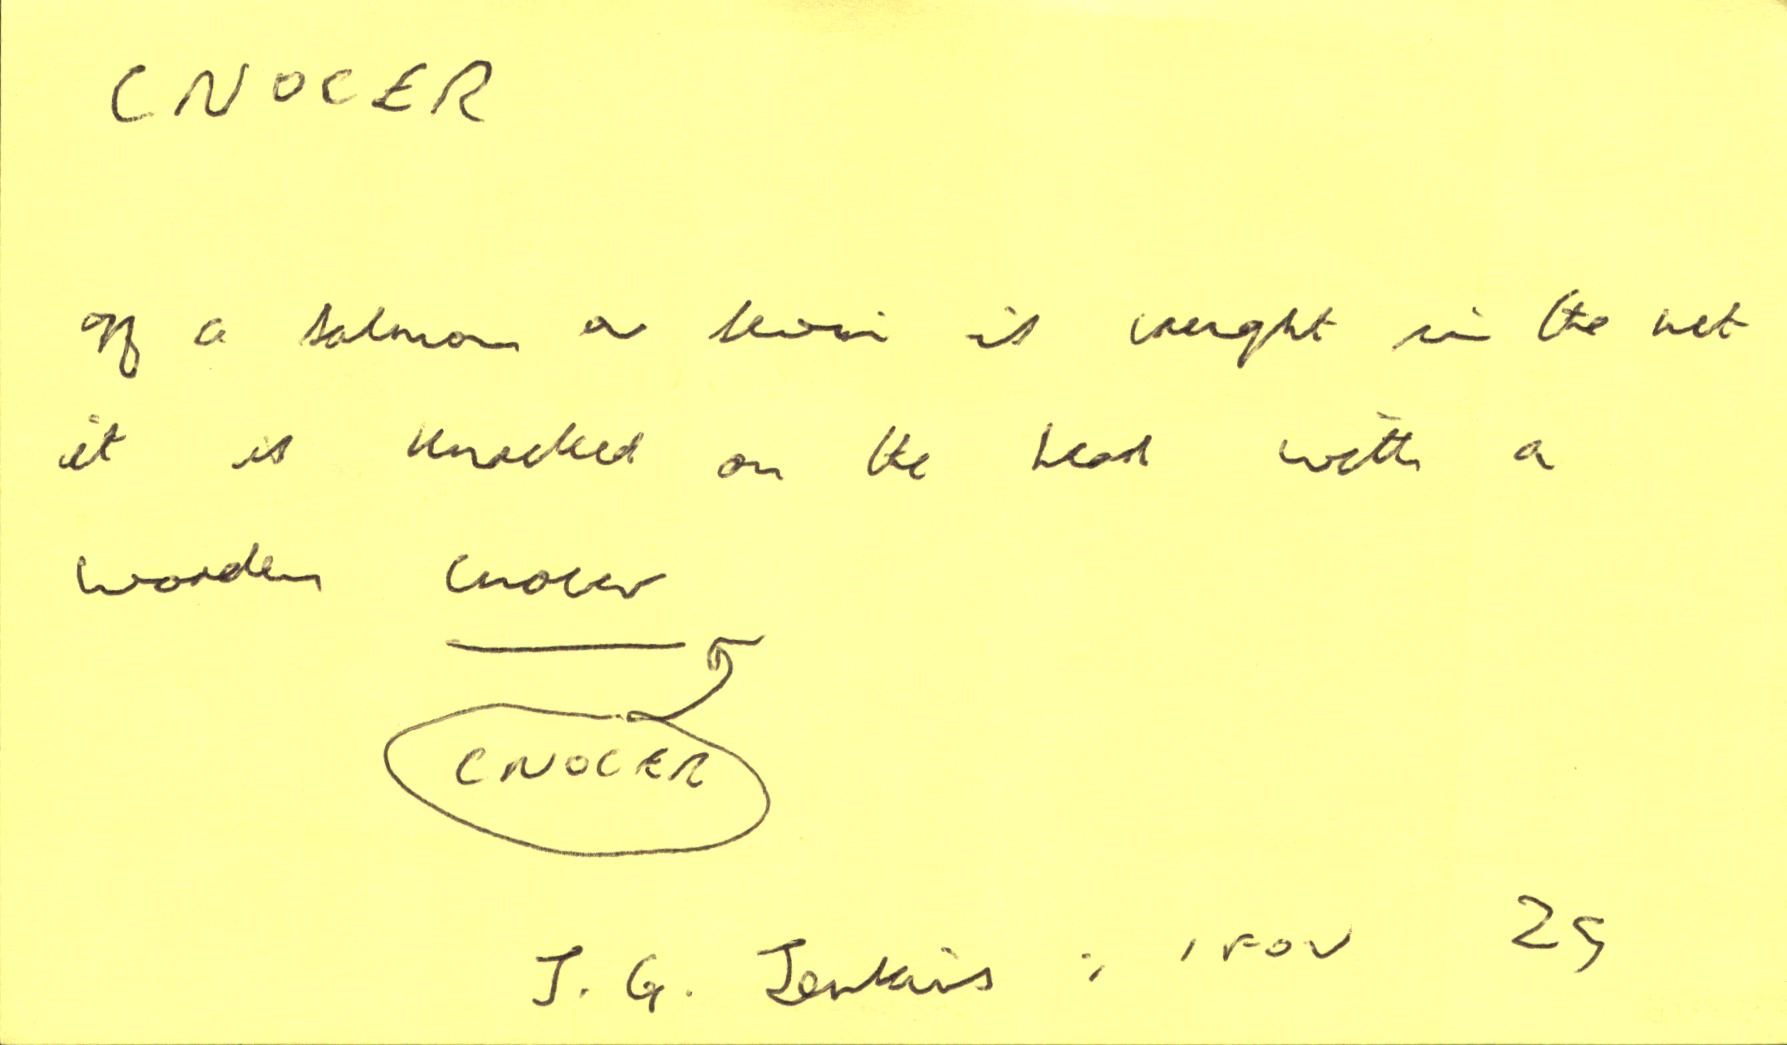 CNOCER
If a salmon or sewin is caught in the net
it is knocked on the head with a
wooden cnocer
CNOCER
J. G. Jenkins ; 25